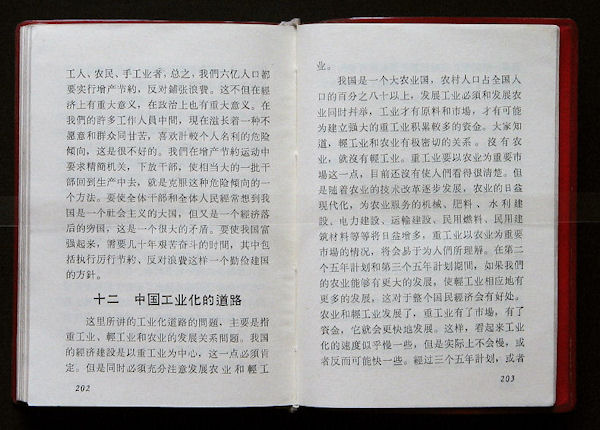 工人、农民、手工业者,总之,我們六亿人口都
要实行增产节約,反对鋪张浪費。这不但在經
济上有重大意义,在政治上也有重大意义。在
我們的許多工作人員中間,現在滋长着一种不
愿意和群众同甘苦,喜欢計較个人名利的危險
傾向,这是很不好的。我們在增产节約运动中
要求精簡机关,下放干部,使相当大的一批干
部回到生产中去,就是克服这种危險傾向的一
个方法。要使全体干部和全体人民經常想到我
国是一个社会主义的大国,但又是一个經济落
后的穷国,这是一个很大的矛盾。要使我国富
强起来,需要几十年艰苦奋斗的时間,其中包
括执行厉行节約、反对浪費这样一个勤俭建国
的方針。
十二 中国工业化的道路
这里所讲的工业化道路的問題,主要是指
重工业、輕工业和农业的发展关系問題。我国
的經济建設是以重工业为中心,这一点必須肯
定。但是同时必須充分注意发展农业和輕工
202
业。
我国是一个大农业国,农村人口占全国人
口的百分之八十以上,发展工业必須和发展农
业同时幷举,工业才有原料和市場,才有可能
为建立强大的重工业积累較多的資金。大家知
道,輕工业和农业有极密切的关系。沒有农
业,就沒有輕工业。重工业要以农业为重要市
場这一点,目前还沒有使人們看得很清楚。但
是随着农业的技术改革逐步发展,农业的日益
現代化,为农业服务的机械、肥料、水利建
設、电力建設、运輸建設、民用燃料、民用建
筑材料等等将日益增多,重工业以农业为重要
市場的情况,将会易于为人們所理解。在第二
个五年計划和第三个五年計划期間,如果我們
的农业能够有更大的发展,使輕工业相应地有
更多的发展,这对于整个国民經济会有好处。
农业和輕工业发展了,重工业有了市場,有了
資金,它就会更快地发展。这样,看起来工业
化的速度似乎慢一些,但是实际上不会慢,或
者反而可能快一些。經过三个五年計划,或者
203